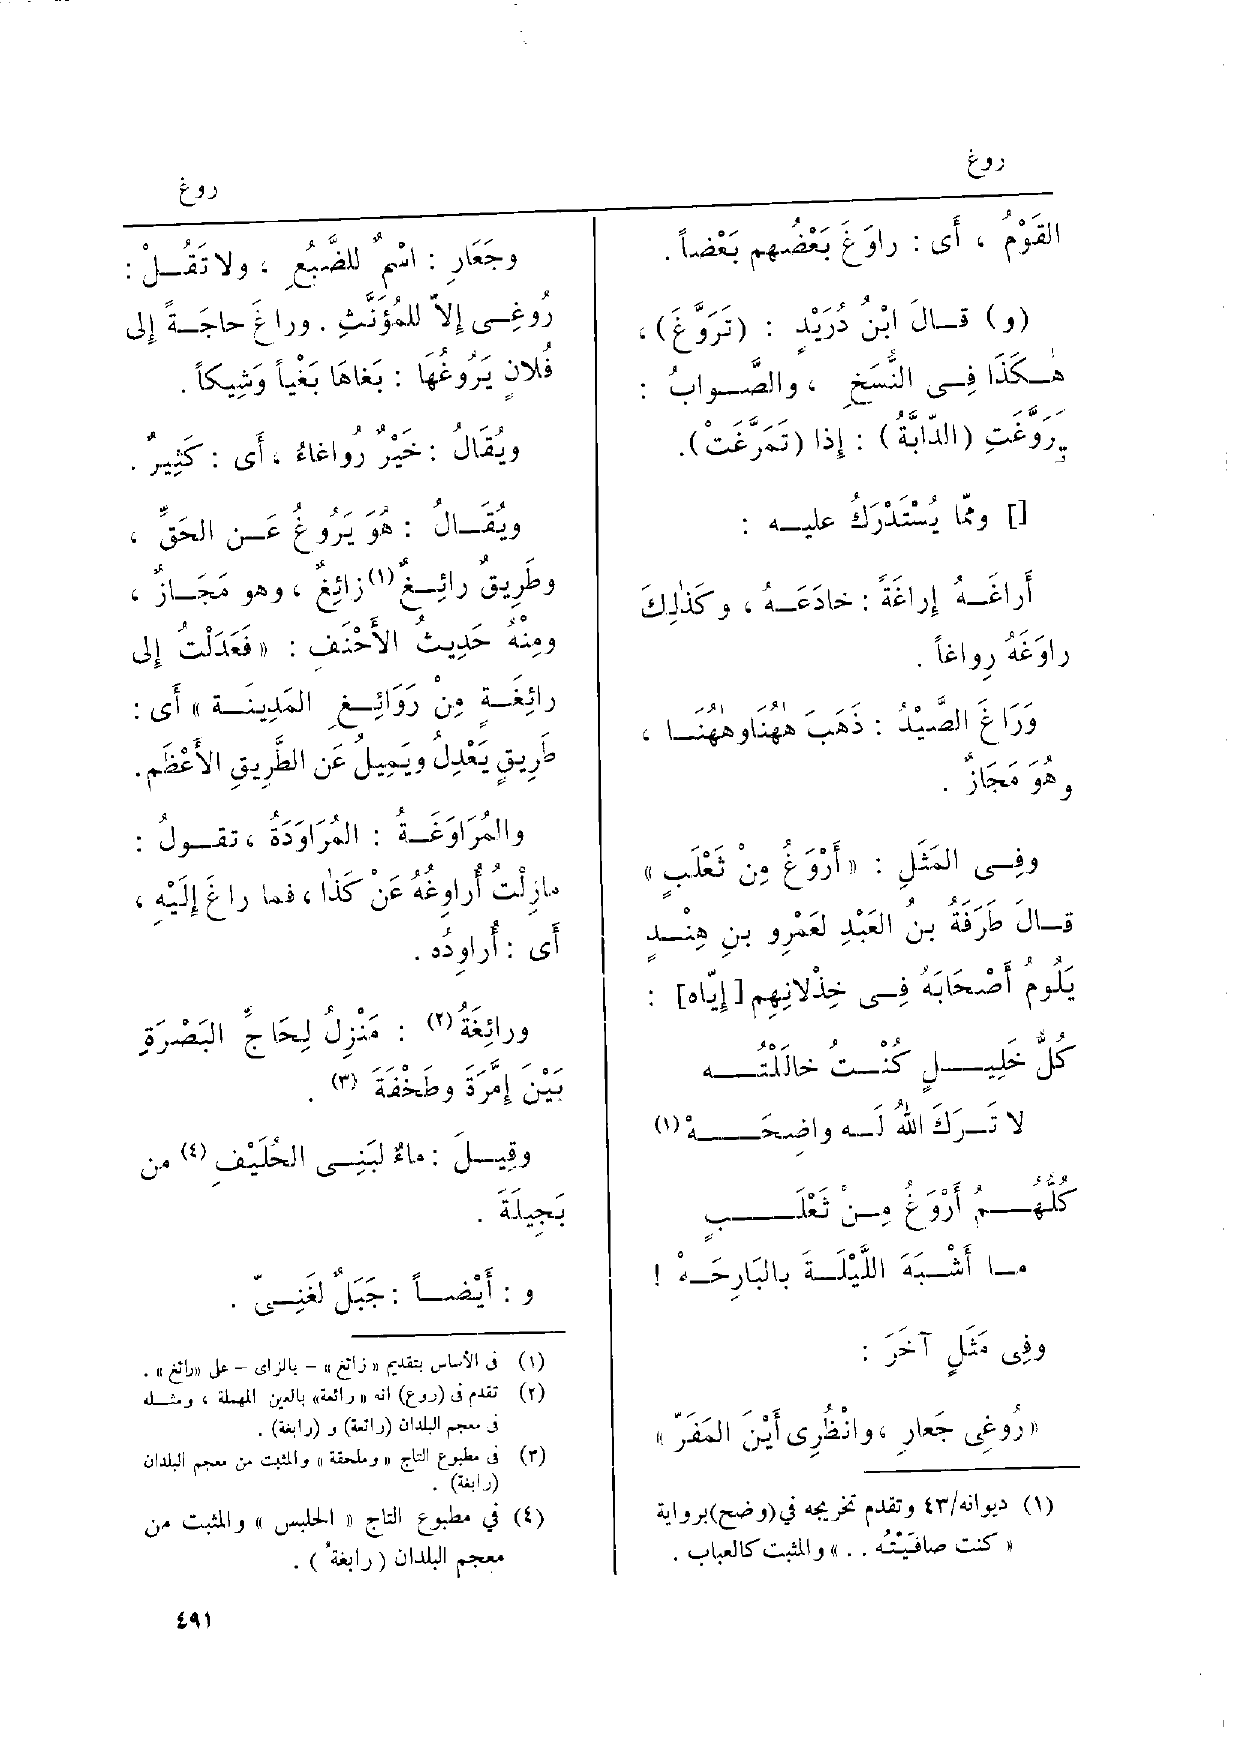 روغ
روغ
القَوْمُ ، أى : راوَغَ بَعْضُهم بَعْضاً .
(و) قـالَ ابْنُ دُرَيْدٍ : (تَرَوَّغَ) ،
هٰـكَذَا فِـى النُّسَخِ ، والصَّـوابُ :
تَرَوَّغَتِ (الدّابَّةُ) : إذا (تَمَرَّغَتْ).
[] وممّا يُسْتَدْرَكُ عليـه :
أَراغَـهُ إراغَةً : خادَعَـهُ ، وكَذٰلِكَ
راوَغَهُ رِواغاً .
وَرَاغَ الصَّيْدُ : ذَهَبَ هٰهُنَا وهٰهُنَـا ،
وهُوَ مَجَازٌ .
وفِـى المَثَلِ : « أَرْوَغُ مِنْ ثَعْلَبٍ »
قـالَ طَرَفَةُ بنُ العَبْدِ لعَمْرِو بنِ هِنْـدٍ
يَلُومُ أَصْحَابَهُ فِـى خِذْلانِهِم [إيّاه] :
كُلُّ خَلِيــلٍ كُنْـتُ خالَلْتُـــه
لا تَـرَكَ اللهُ لَـه واضِحَـــهْ (١)
كُلُّهُــمُ أَرْوَغُ مِـنْ ثَعْلَـــبٍ
مـا أَشْـبَهَ اللَّيْلَـةَ بالبَارِحَـهْ !
وفِى مَثَلٍ آخَرَ :
« رُوغِى جَعارِ ، وانْظُرِى أَيْنَ المَفَرّ »
(١) ديوانه/٤٣ وتقدم تخريجه في (وضح) برواية
« كنت صافَيْتُه . . » والمثبت كالعباب .
وجَعَارِ : اسْمٌ للضَّبُعِ ، ولا تَقُـلْ :
رُوغِـى إلاّ للمُؤَنَّثِ . وراغَ حاجَـةً إلى
فُلانٍ يَرُوغُهَا : بَغاهَا بَغْياً وَشِيكاً .
ويُقَالُ : خَيْرٌ رواغاءُ ، أى : كَثِيرٌ .
ويُقَـالُ : هُوَ يَرُوغُ عَـن الحَقِّ ،
وطَرِيقٌ رائِـغٌ (١) زائِغٌ ، وهو مَجَـازٌ ،
ومِنْهُ حَدِيثُ الأَحْنَفِ : « فَعَدَلْتُ إلى
رائِغَـةٍ مِنْ رَوَائِـغِ المَدِينَـة » أى :
طَرِيقٍ يَعْدِلُ ويَمِيلُ عَن الطَّرِيقِ الأَعْظَمِ .
والمُرَاوَغَـةُ : المُرَاوَدَةُ ، تقـولُ :
مازِلْتُ أُراوِغُهُ عَنْ كَذَا ، فما راغَ إلَيْهِ ،
أَى : أُراوِدُه .
ورائِغَةُ (٢) : مَنْزِلٌ لِحَاجِّ البَصْرَةِ
بَيْنَ إمَّرَةَ وطَخْفَةَ (٣) .
وقِيـلَ : ماءٌ لبَنِـى الحُلَيْفِ (٤) من
بَجِيلَةَ .
و : أَيْضـاً : جَبَلٌ لغَنِـىّ .
(١) فى الأساس بتقديم « زائغ » - بالزاى - على «رائغ » .
(٢) تقدم فى (روع) انه « رائعة» بالعين المهملة ، ومثـله
فى معجم البلدان (رائعة) و (رابغة) .
(٣) فى مطبوع التاج « وملحقة » والمثبت من معجم البلدان
(رابغة) .
(٤) في مطبوع التاج « الحليس » والمثبت من
معجم البلدان ( رابغة ) .
٤٩١